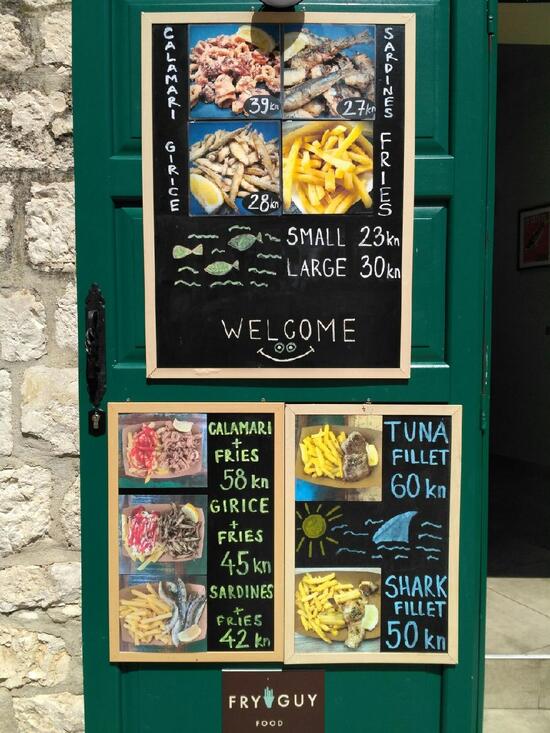 CALAMARI
39kn
27kn
SARDINES
GIRICE
28kn
FRIES
SMALL 23kn
LARGE 30kn
WELCOME
CALAMARI
+
FRIES
58kn
GIRICE
+
FRIES
45kn
SARDINES
+
FRIES
42kn
TUNA
FILLET
60kn
SHARK
FILLET
50kn
FRY GUY
FOOD